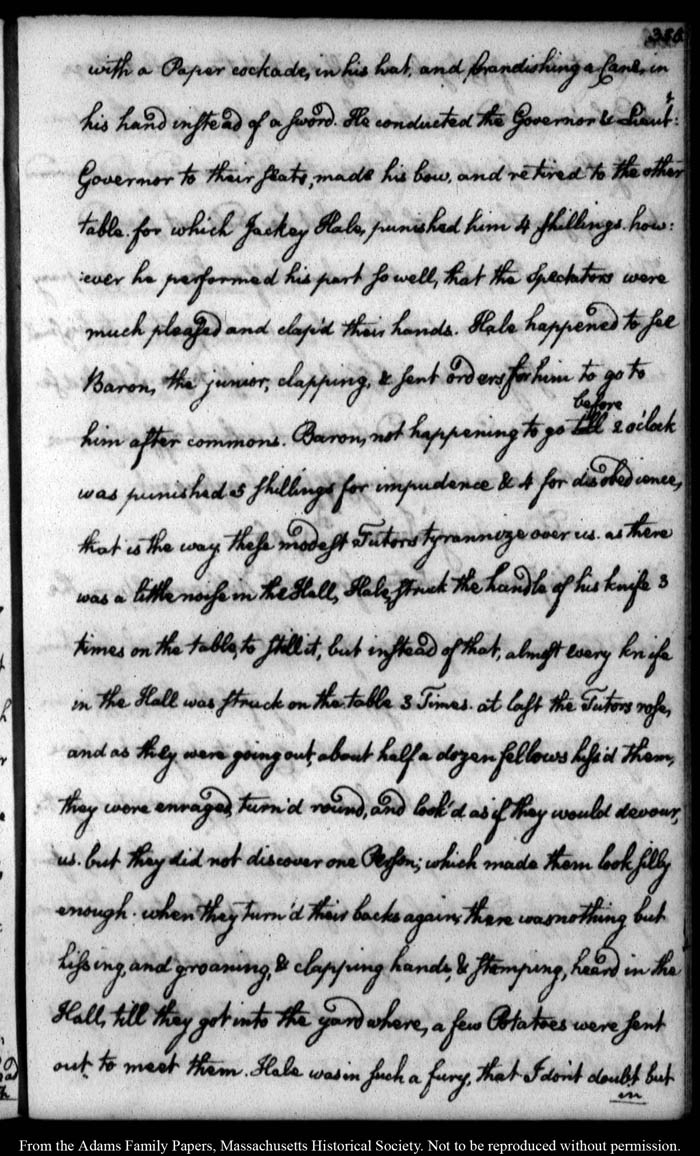 386
with a Paper cockade, in his hat, and brandishing a Cane, in
his hand instead of a sword. He conducted the Governor & Lieut:
Governor to their seats, made his bow, and retired to the other
table. for which Jackey Hale, punished him 4 shillings. how:
:ever he performed his part so well, that the spectators were
much pleased and clap'd their hands. Hale happened to see
Baron, the junior, clapping, & sent orders for him to go to
before
him after commons. Baron, not happening to go till 2 o'clock
was punished 5 shillings for impudence & 4 for disobedience,
that is the way these modest Tutors tyrannize over us. as there
was a little noise in the Hall, Hale struck the handle of his knife 3
times on the table, to still it, but instead of that, almost every knife
in the Hall was struck on the table 3 Times. at last the Tutors rose,
and as they were going out, about half a dozen fellows hiss'd them,
they were enraged, turn'd round, and look'd as if they would devour,
us. but they did not discover one Person; which made them look silly
enough. when they turn'd their backs again, there was nothing but
hissing, and groaning, & clapping hands, & stamping, heard in the
Hall, till they got into the yard where, a few Potatoes were sent
out to meet them. Hale was in such a fury, that I don't doubt but
in
From the Adams Family Papers, Massachusetts Historical Society. Not to be reproduced without permission.